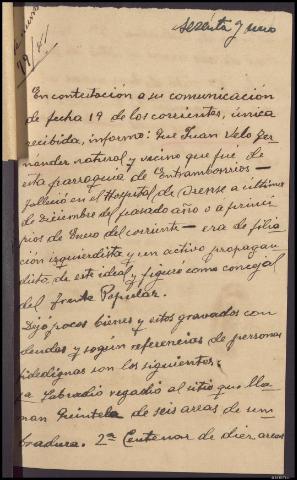 sesenta y uno
19/41
En contestación a su comunicación
de fecha 19 de los corrientes, única
recibida, informo: Que Juan Velo Fer-
nández natural y vecino que fue de
esta parroquia de Entrambosrios —
falleció en el Hospital de Orense a últimos
de Diciembre del pasado año o a princi
pios de Enero del corriente — era de filia
ción izquierdista y un activo propagan
dista de este ideal y figuró como concejal
del frente Popular.
Dejó pocos bienes y estos gravados con
deudas y según referencias de personas
fidedignas son los siguientes:
1ª Labradío regadío al sitio que lla
man Quintela de seis areas de sem
bradura. 2ª Centenar de diez areas